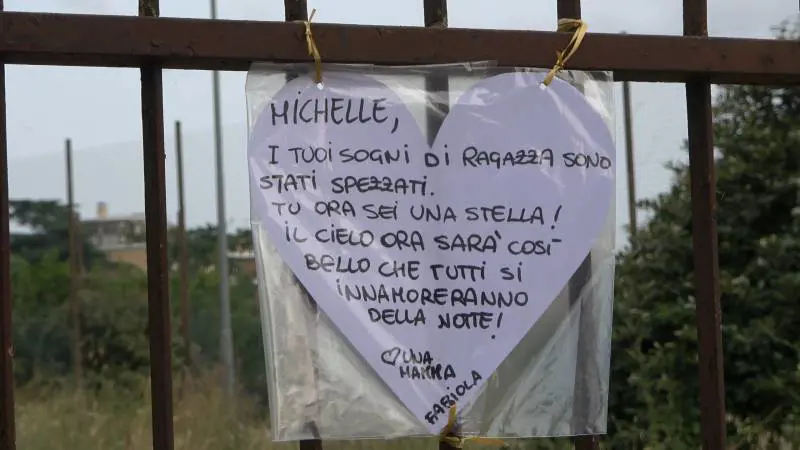 MICHELLE,
I TUOI SOGNI DI RAGAZZA SONO
STATI SPEZZATI.
TU ORA SEI UNA STELLA!
IL CIELO ORA SARÀ COSÌ
BELLO CHE TUTTI SI
INNAMORERANNO
DELLA NOTTE!
♡UNA
MAMMA
FABIOLA